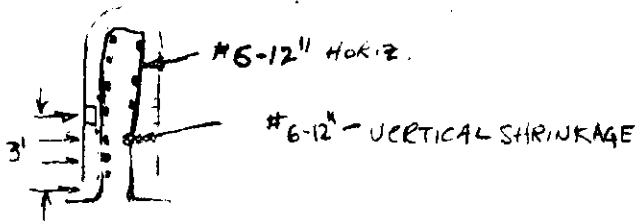 #6-12" HORIZ.
#6-12" - VERTICAL SHRINKAGE
3'